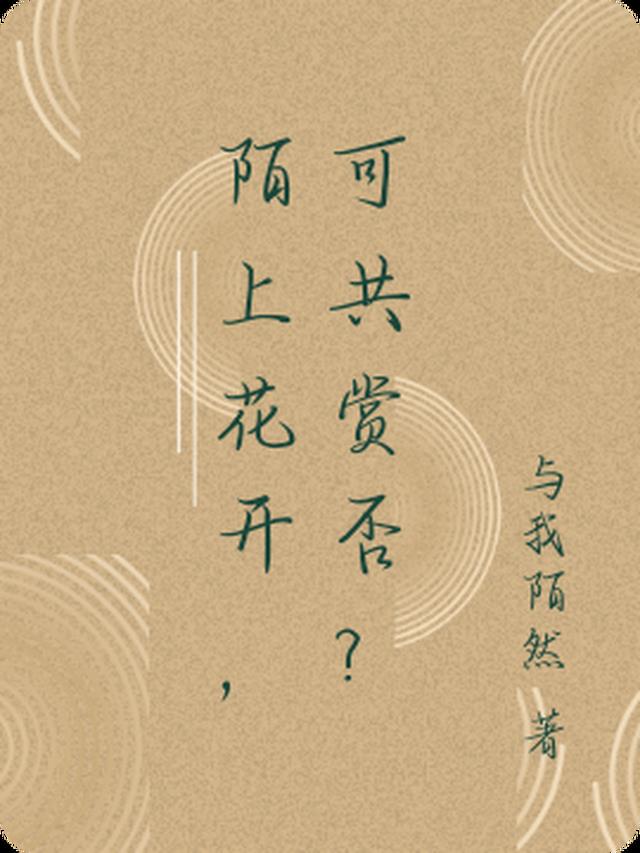 陌上花开，
可共赏否？
与我陌然 著